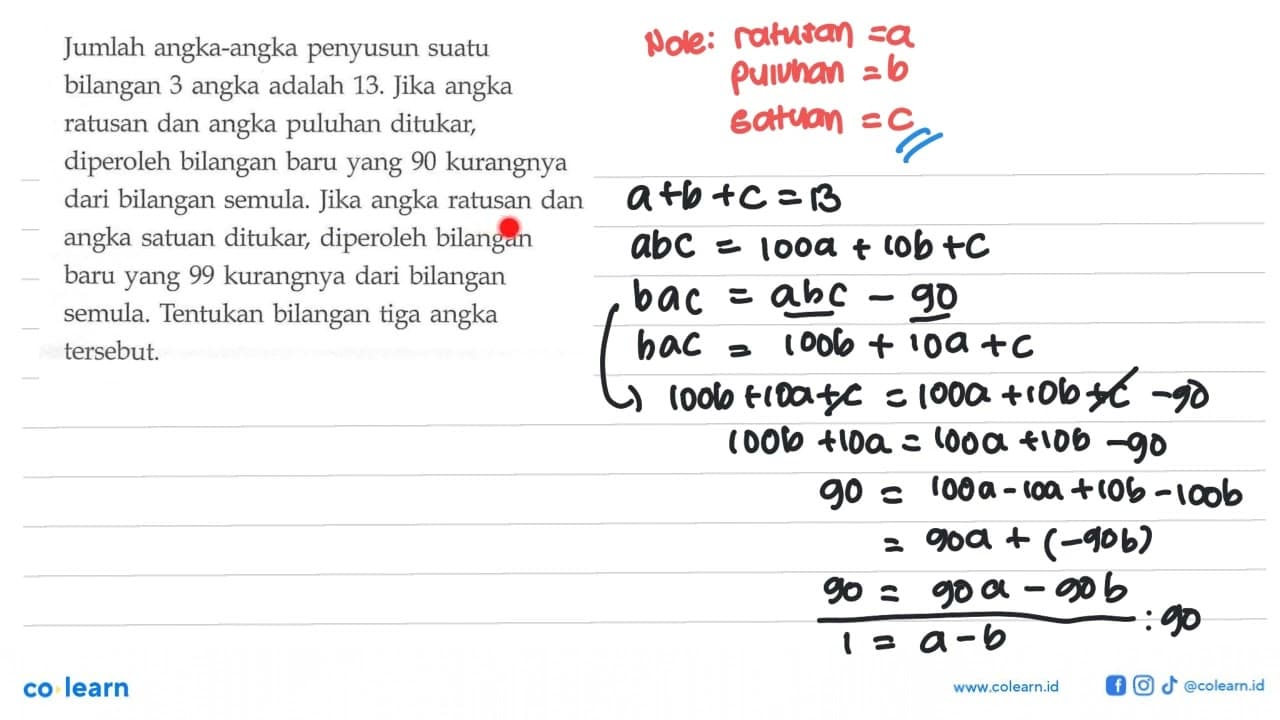 Jumlah angka-angka penyusun suatu
bilangan 3 angka adalah 13. Jika angka
ratusan dan angka puluhan ditukar,
diperoleh bilangan baru yang 90 kurangnya
dari bilangan semula. Jika angka ratusan dan
angka satuan ditukar, diperoleh bilangan
baru yang 99 kurangnya dari bilangan
semula. Tentukan bilangan tiga angka
tersebut.
Note: ratusan = a
puluhan = b
satuan = c
a + b + c = 13
abc = 100a + 10b + c
bac = abc - 90
bac = 100b + 10a + c
100b + 10a + c = 100a + 10b + c - 90
100b + 10a = 100a + 10b - 90
90 = 100a - 10a + 10b - 100b
= 90a + (-90b)
90 = 90a - 90b
: 90
1 = a - b
co learn
www.colearn.id
@colearn.id